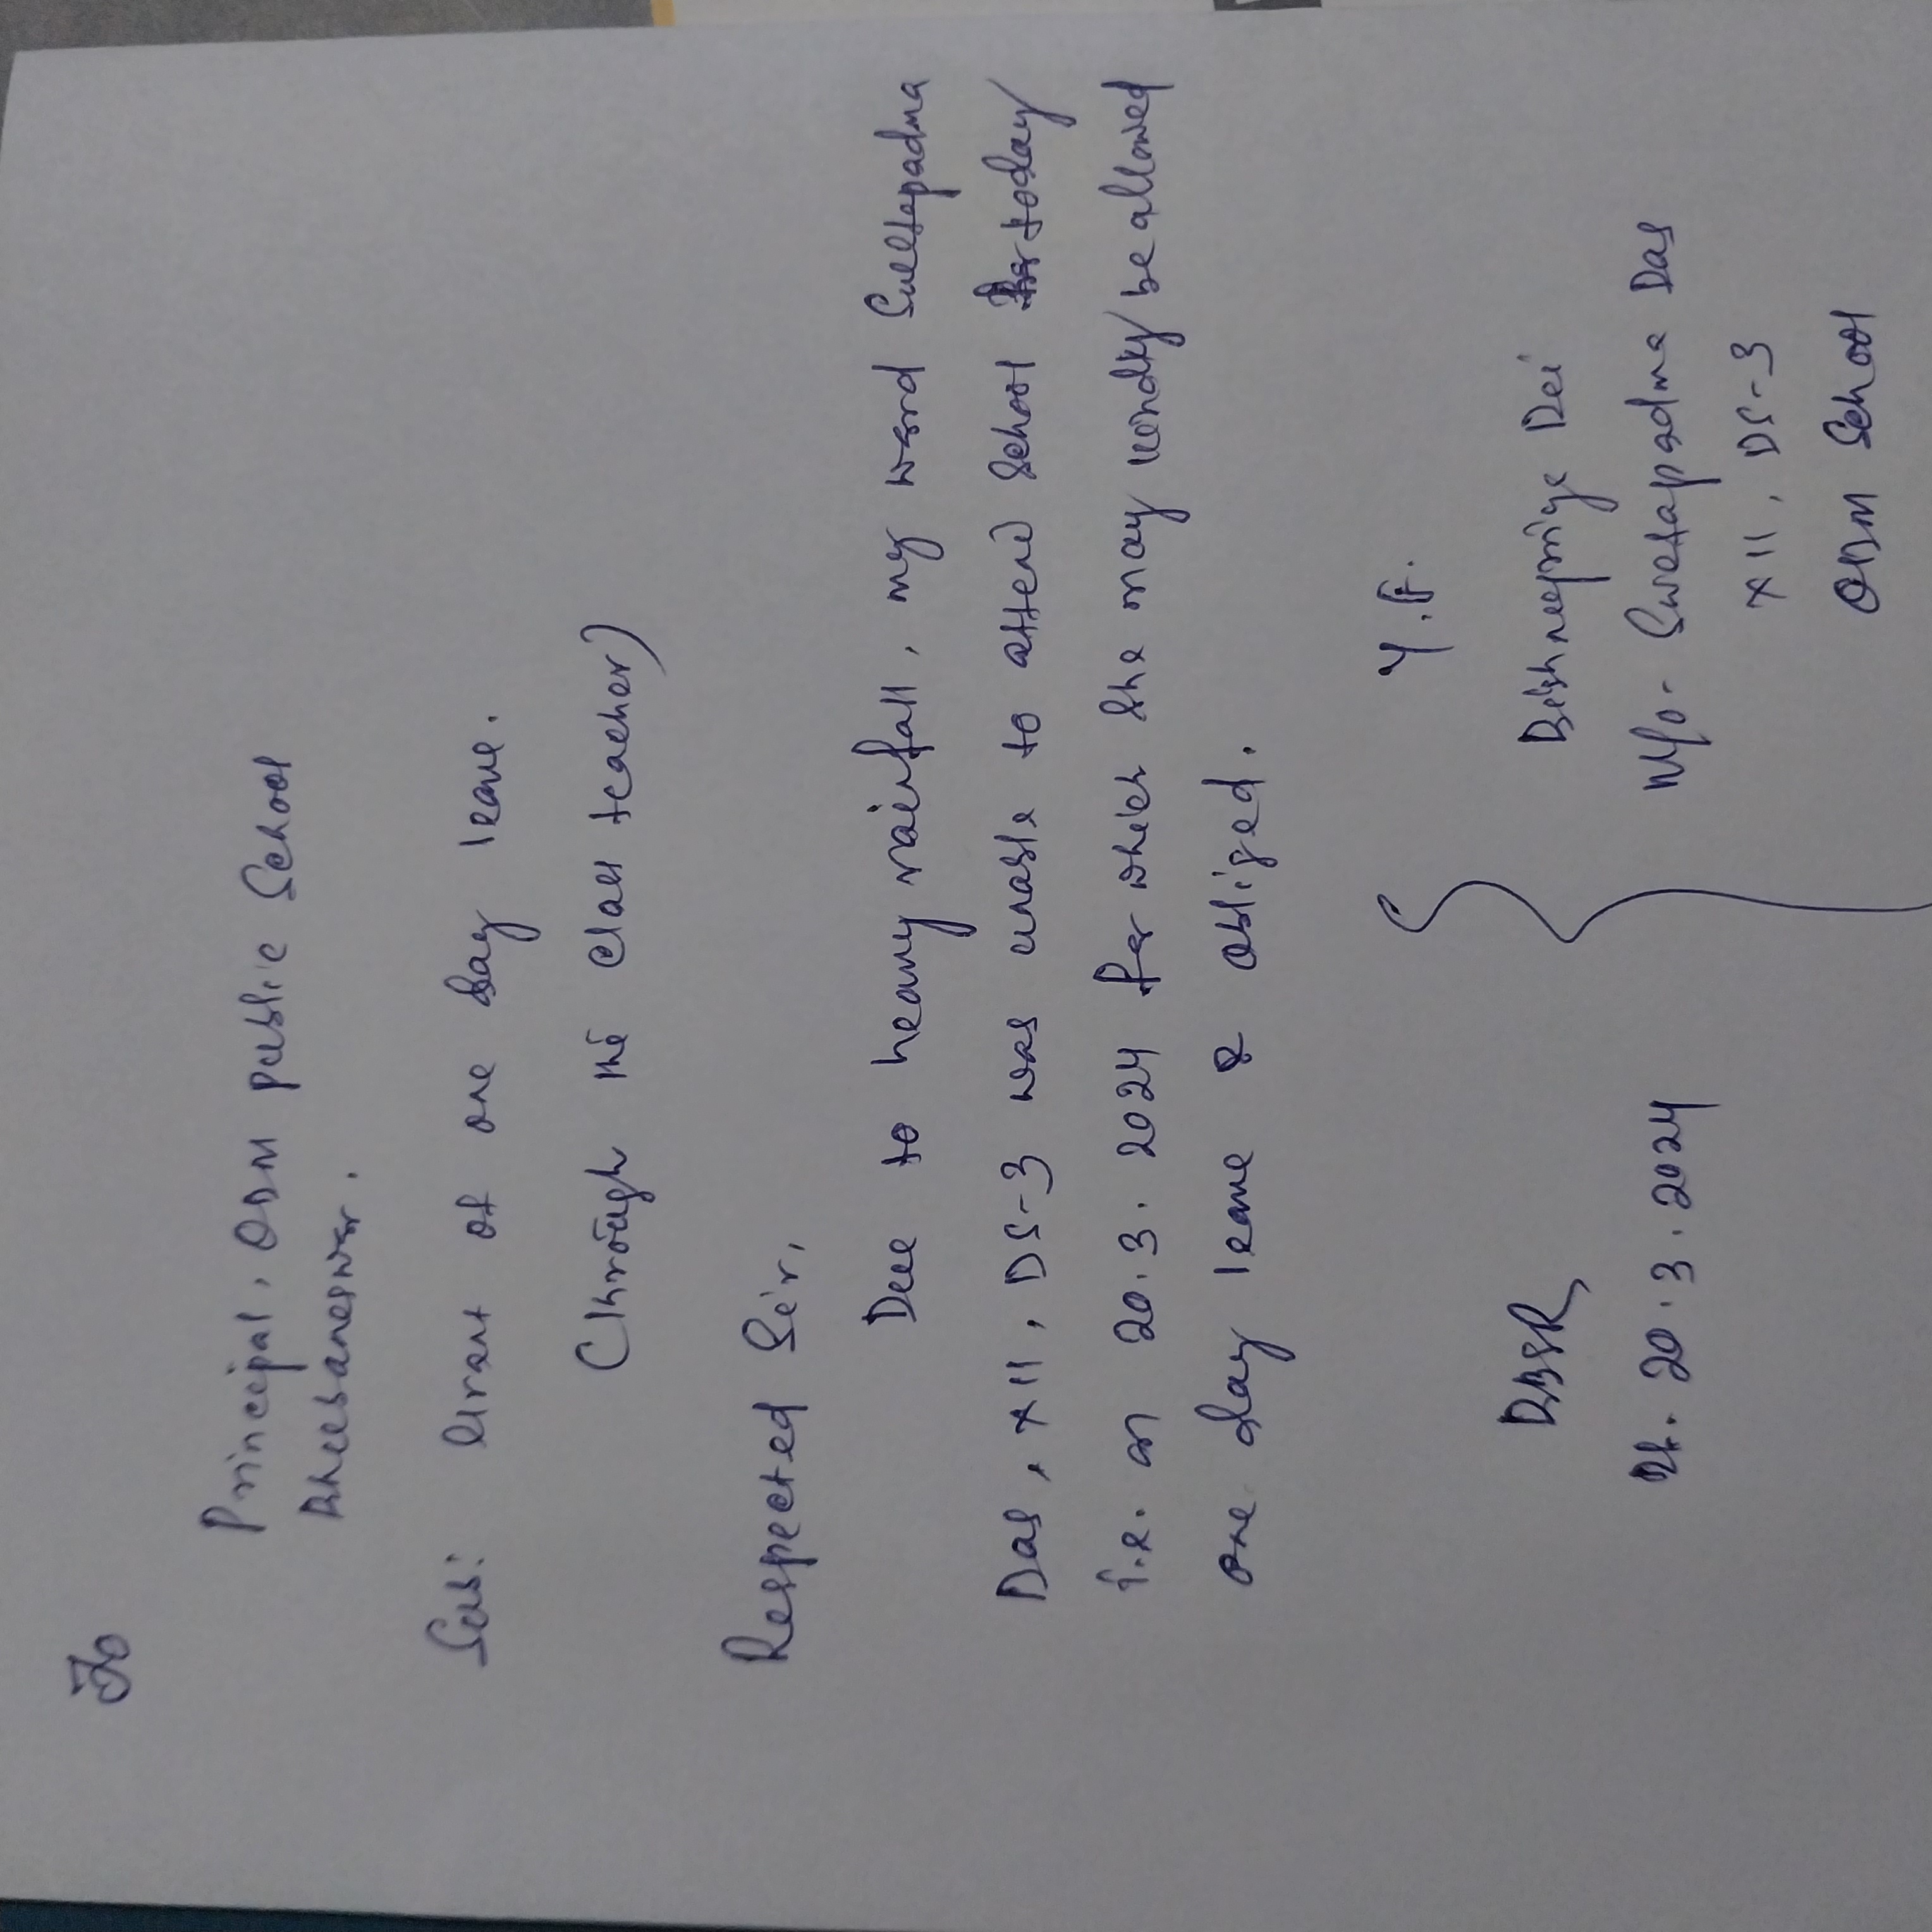 To
Principal, ODM public School
Bhubaneswar.
Sub: Grant of one day leave.
(Through the class teacher)
Respected Sir,
Due to heavy rainfall, my ward
Das, XII, DS-3 was unable to attend school for today
i.e. on 20.3.2024 for which she may kindly be allowed
one day leave & obliged.
Y.F.
BBSR
Dt. 20.3.2024
Dei
M/o- Swetapadma Das
XII, DS-3
ODM School